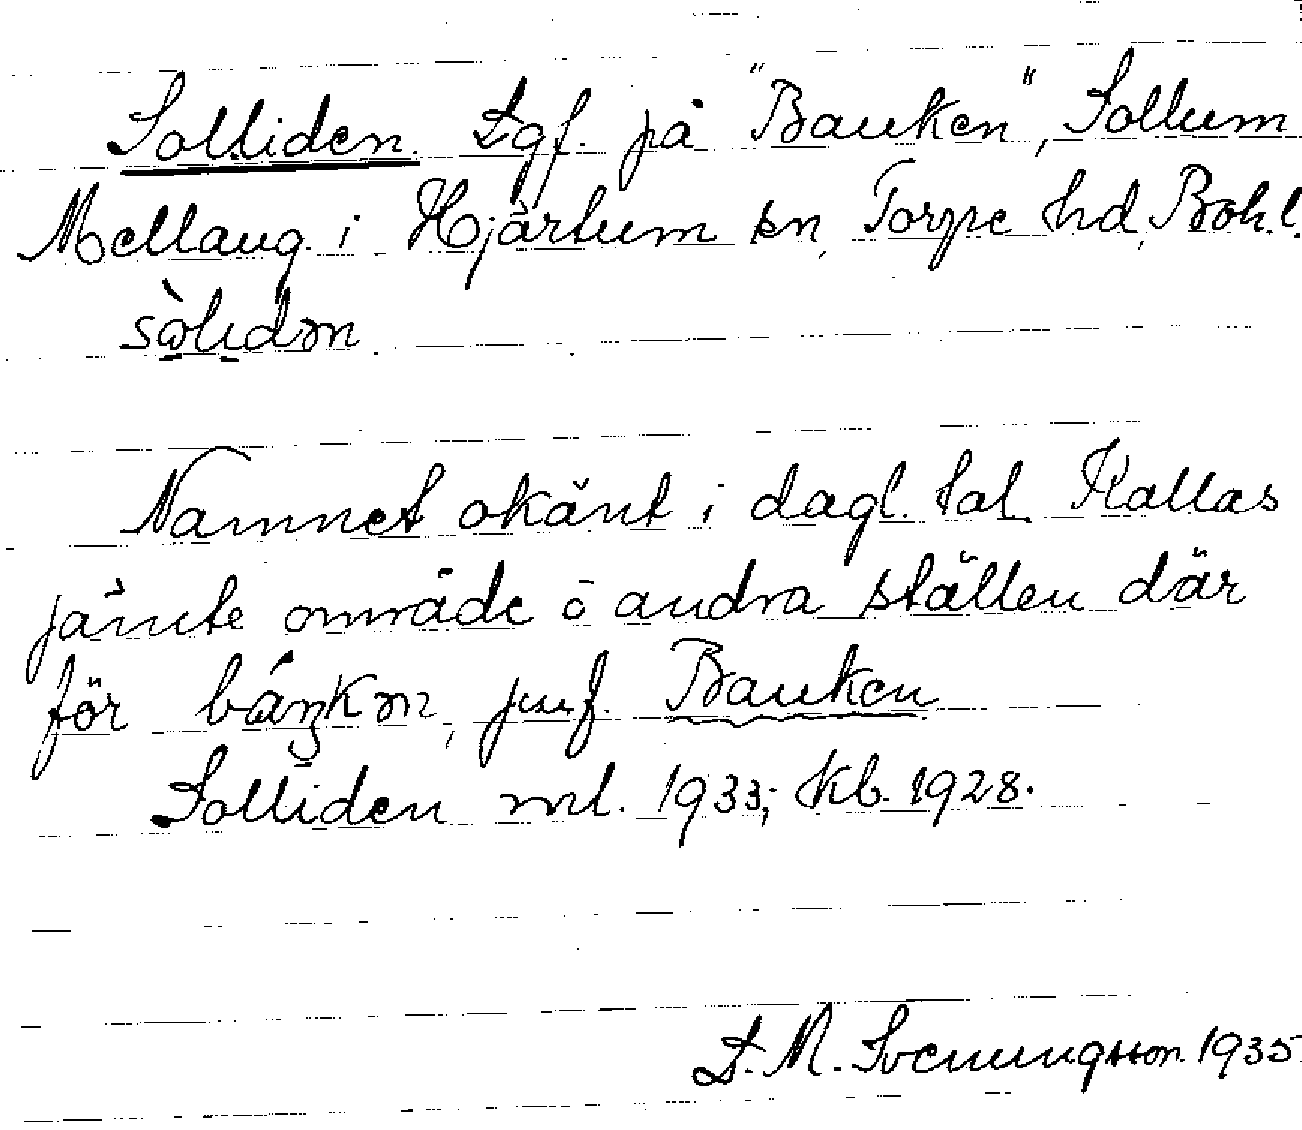 Solliden. Lgf. på "Bauken", Sollum
Mellang. i Hjärtum sn, Torpe hd, Bohl.
sòlıdən
Namnet okänt i dagl. tal. Kallas
jämte område o andra ställen där
för báŋkən, jmf. Bauken
Solliden ml. 1933; kb. 1928.
S. M. Svenungsson 1935